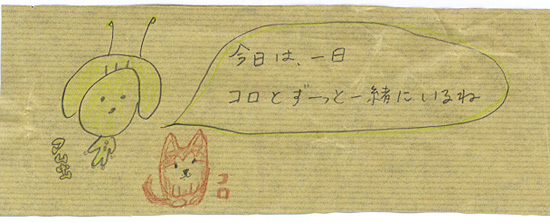 今日は、一日
コロとずーっと一緒にいるね
コロ